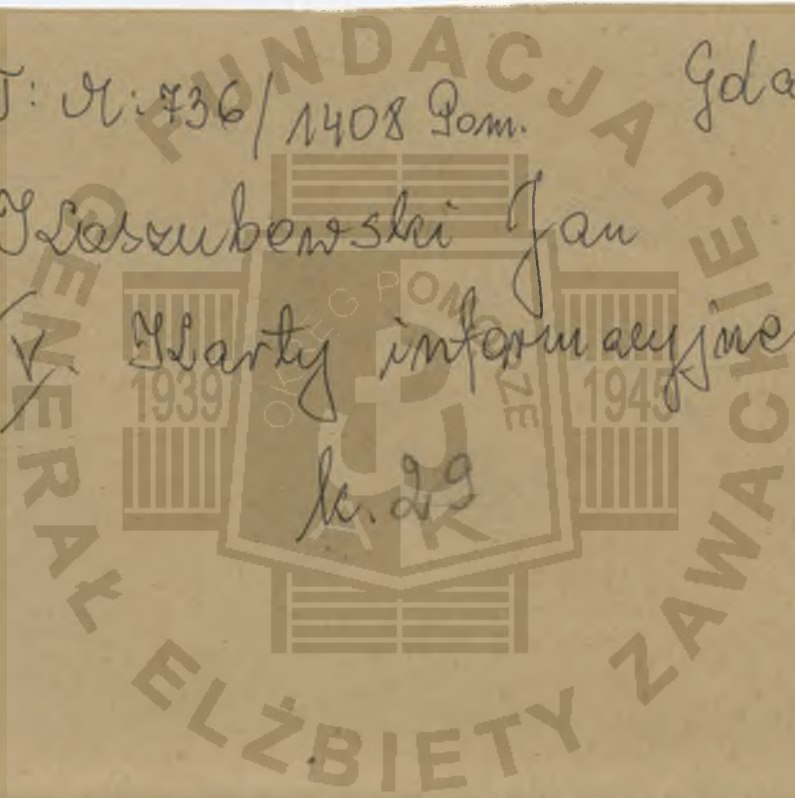 T: M: 736/1408 Pom. Gda
Kaszubowski Jan
V. Karty informacyjne
k. 29
FUNDACJA GENERAŁ ELŻBIETY ZAWACKIEJ
OKRĘG POMORZE
1939 1945
AK